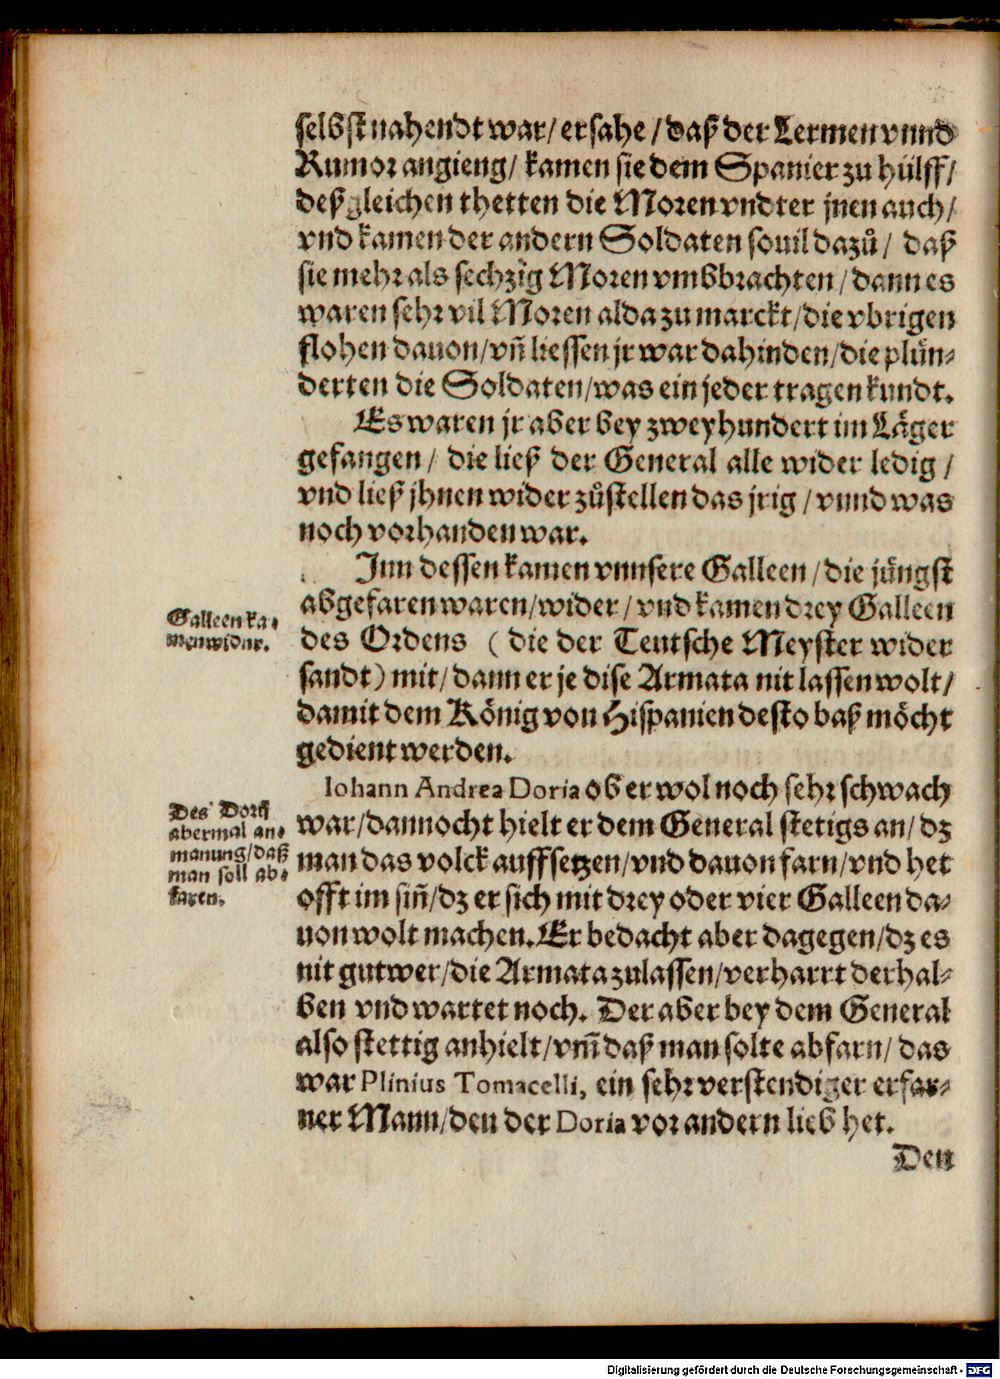 selbst nahendt war/ ersahe / daß der Lermen vnnd
Rumor angieng/ kamen sie dem Spanier zu hülff/
deßgleichen thetten die Moren vndter jnen auch/
vnd kamen der andern Soldaten souil dazů/ daß
sie mehr als sechzig Moren vmbbrachten / dann es
waren sehr vil Moren alda zu marckt/die vbrigen
flohen dauon/vñ liessen jr war dahinden/die plün-
derten die Soldaten/was ein jeder tragen kundt.
Es waren jr aber bey zweyhundert im Läger
gefangen / die ließ der General alle wider ledig /
vnd ließ jhnen wider zůstellen das jrig / vnnd was
noch vorhanden war.
Inn dessen kamen vnnsere Galleen /die jüngst
abgefaren waren/wider / vnd kamen drey Galleen
des Ordens ( die der Teutsche Meyster wider
sandt) mit/ dann er je dise Armata nit lassen wolt/
damit dem König von Hispanien desto baß möcht
gedient werden.
Galleen ka-
men wider.
Iohann Andrea Doria ob er wol noch sehr schwach
war/dannocht hielt er dem General stetigs an/ dz
man das volck auffsetzen/vnd dauon farn/vnd het
offt im siñ/dz er sich mit drey oder vier Galleen da-
uon wolt machen. Er bedacht aber dagegen/dz es
nit gut wer/die Armata zulassen/verharrt derhal-
ben vnd wartet noch. Der aber bey dem General
also stettig anhielt/vm̃ daß man solte abfarn/ das
war Plinius Tomacelli, ein sehr verstendiger erfar-
ner Mann/den der Doria vor andern lieb het.
Des Dorij
abermal an-
manung/daß
man soll ab-
faren.
Den
Digitalisierung gefördert durch die Deutsche Forschungsgemeinschaft - DFG